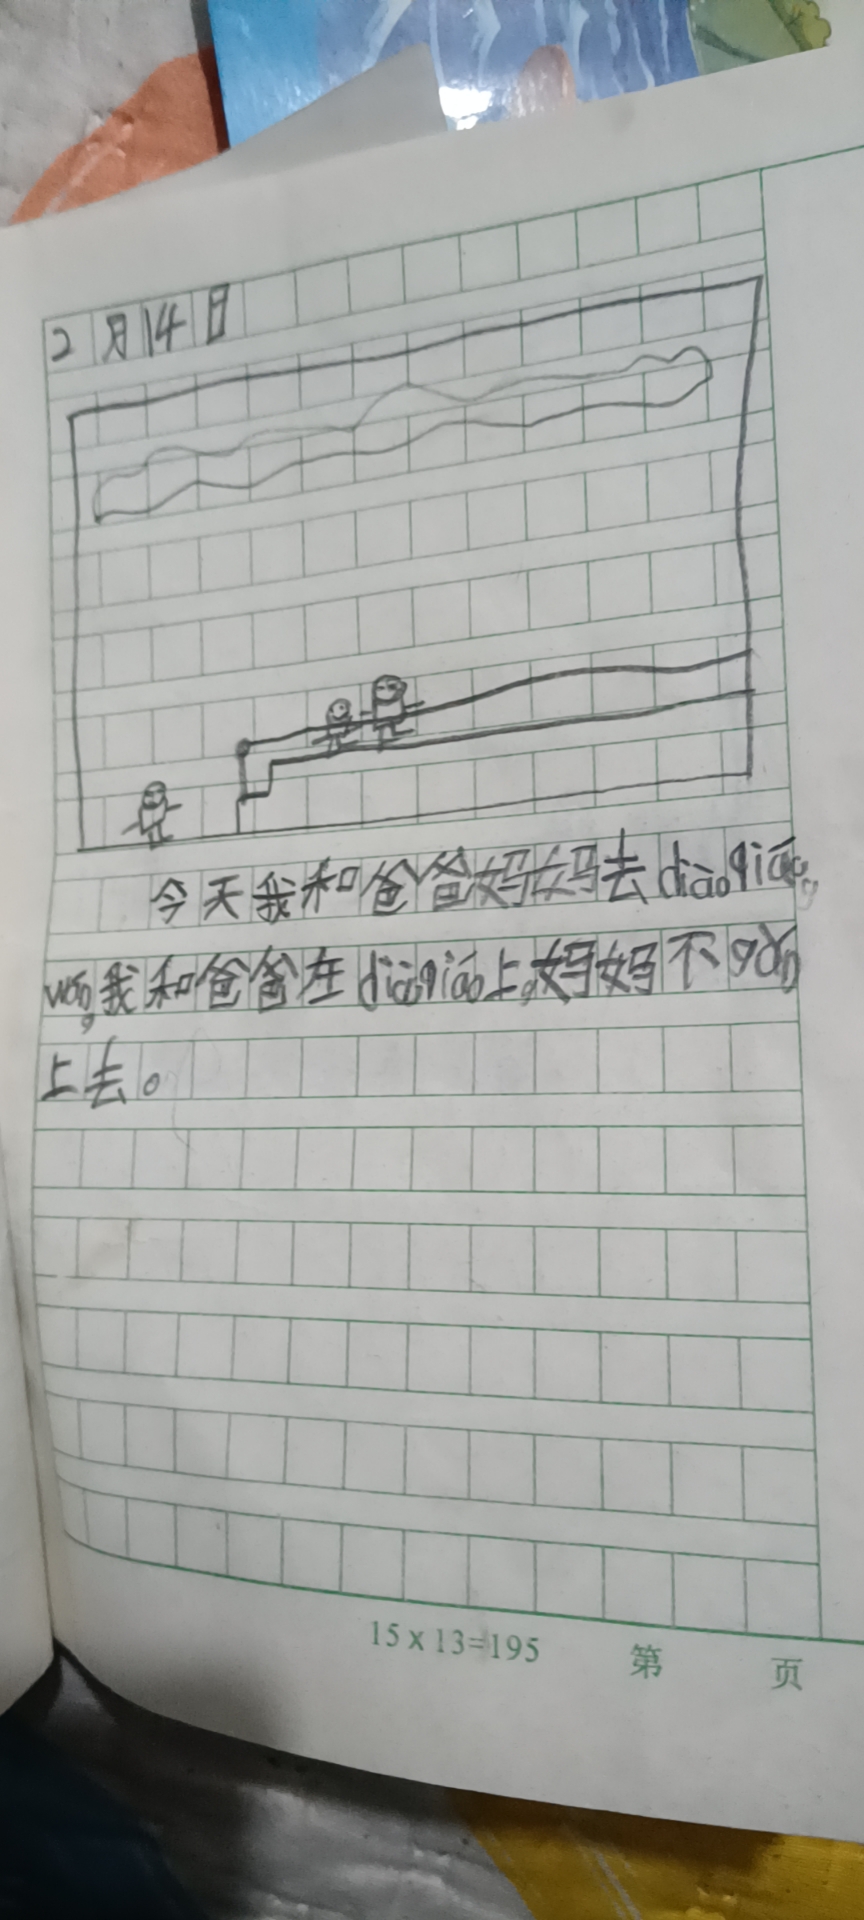 2月14日
今天我和爸爸妈妈去diàoqiáo,
wán,我和爸爸在diàoqiáo上,妈妈不gǎn
上去。
15×13=195 第 页